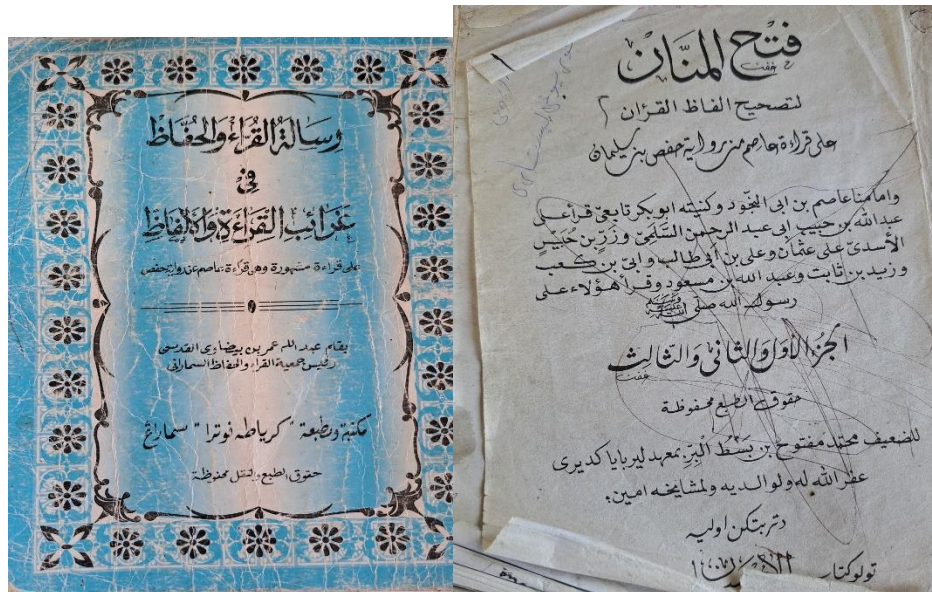 رسالة القراء والحفاظ
في
غرائب القراءة والالفاظ
على قراءة مشهورة وهي قراءة عاصم عند رواية حفص
بقلم عبد الله عمر بن بيضاوى القدسى
رئيس جمعية القراء والحفاظ السماراني
مكتبة ومطبعة "كرياطه فوترا" سمارانج
حقوق الطبع والنقل محفوظة
فتح المنّان
لتصحيح الفاظ القرٰان
على قراءة عاصم من رواية حفص بن سليمان
وامامنا عاصم بن ابى النجّود وكنيته ابو بكر تابعيّ قرأ على
عبد الله بن حبيب ابى عبد الرحمن السّلميّ وزرّ بن حُبيشٍ
الأسدىّ على عثمان وعلى بن أبى طالب وابيّ بن كعب
وزيد بن ثابت وعبد الله بن مسعود وقرأ هؤلاء على
رسول الله صلى الله عليه وسلم
الجزء الاول والثانى والثالث
حقوق الطبع محفوظة
للضعيف محمّد مفتوح بن بَسْطُ الْبِرِّ بمعهد ليربايا كديرى
عفر الله له ولوالديه ولمشايخه امين.
دتربتكن اوليه
تولوكتار